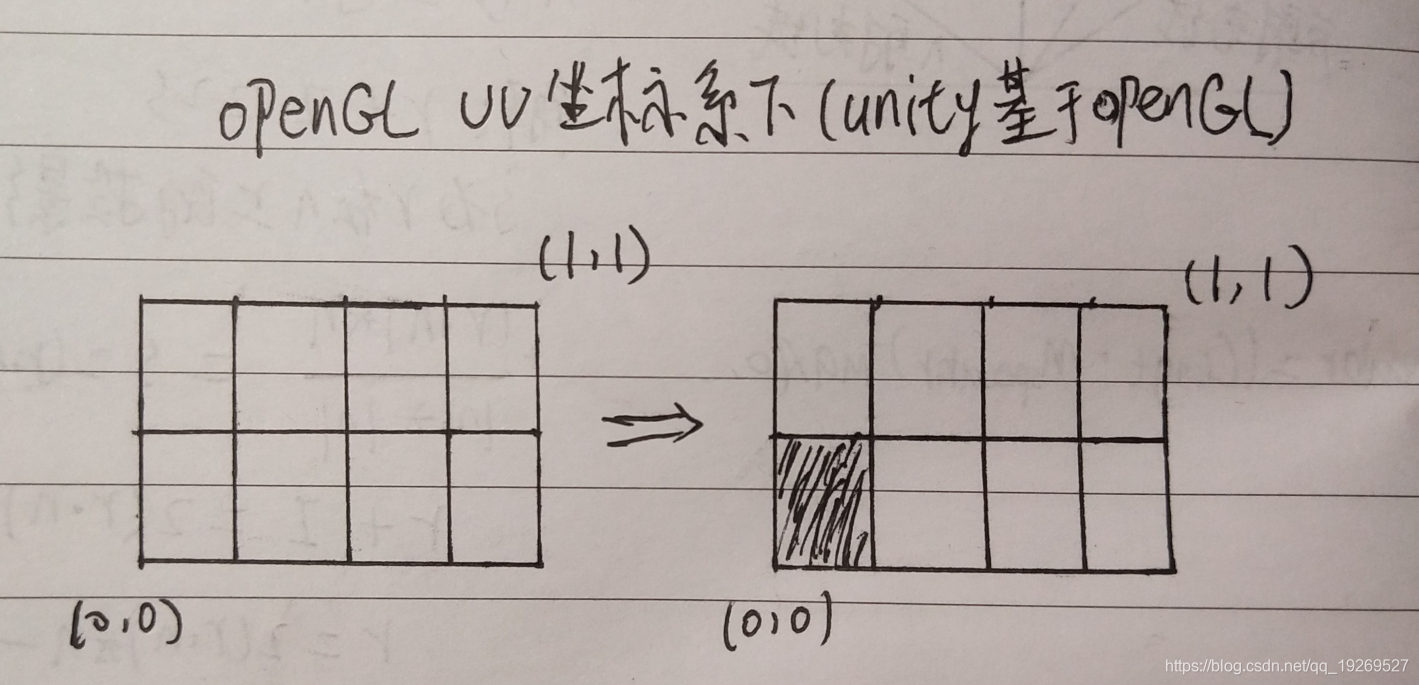 openGL UV坐标系下(unity基于openGL)
(1,1)
(1,1)
(0,0)
(0,0)
https://blog.csdn.net/qq_19269527